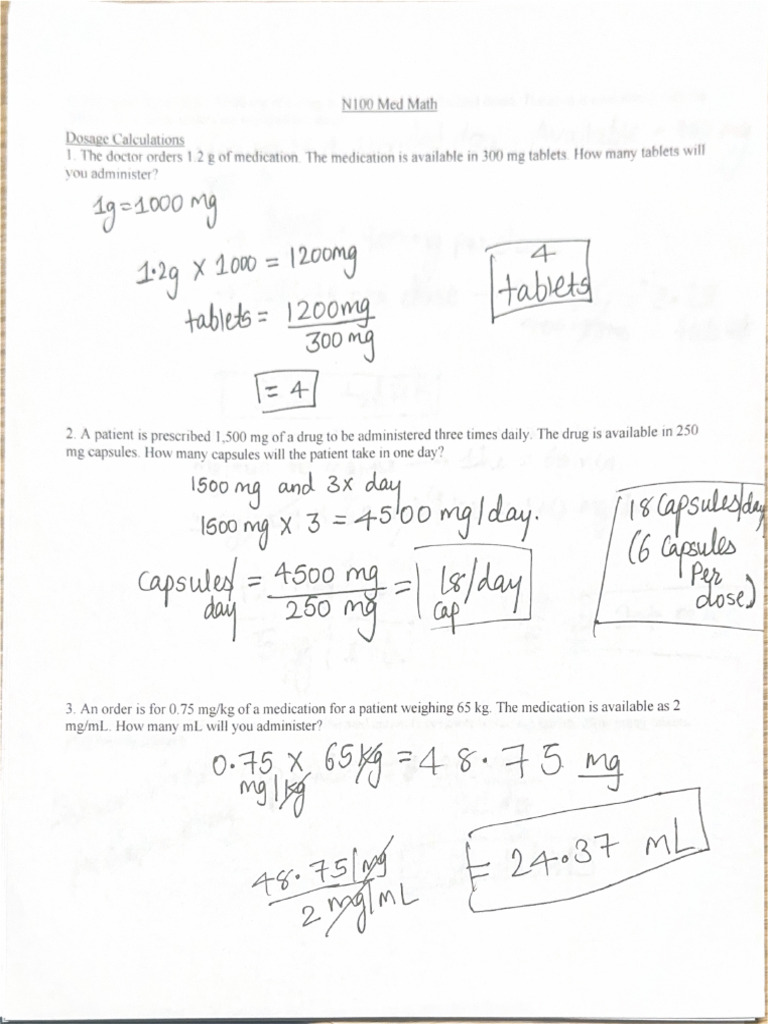 N100 Med Math
Dosage Calculations
1. The doctor orders 1.2 g of medication. The medication is available in 300 mg tablets. How many tablets will
you administer?
1g = 1000 mg
1.2g X 1000 = 1200mg
tablets = 1200mg
300 mg
= 4
4
tablets
2. A patient is prescribed 1,500 mg of a drug to be administered three times daily. The drug is available in 250
mg capsules. How many capsules will the patient take in one day?
1500 mg and 3x day
1500 mg X 3 = 4500 mg/day.
Capsules/ = 4500 mg = 18/day
day 250 mg cap
18 Capsules/day
(6 Capsules
Per
dose)
3. An order is for 0.75 mg/kg of a medication for a patient weighing 65 kg. The medication is available as 2
mg/mL. How many mL will you administer?
0.75 X 65kg = 48.75 mg
mg/kg
48.75 mg
2 mg/mL
= 24.37 mL